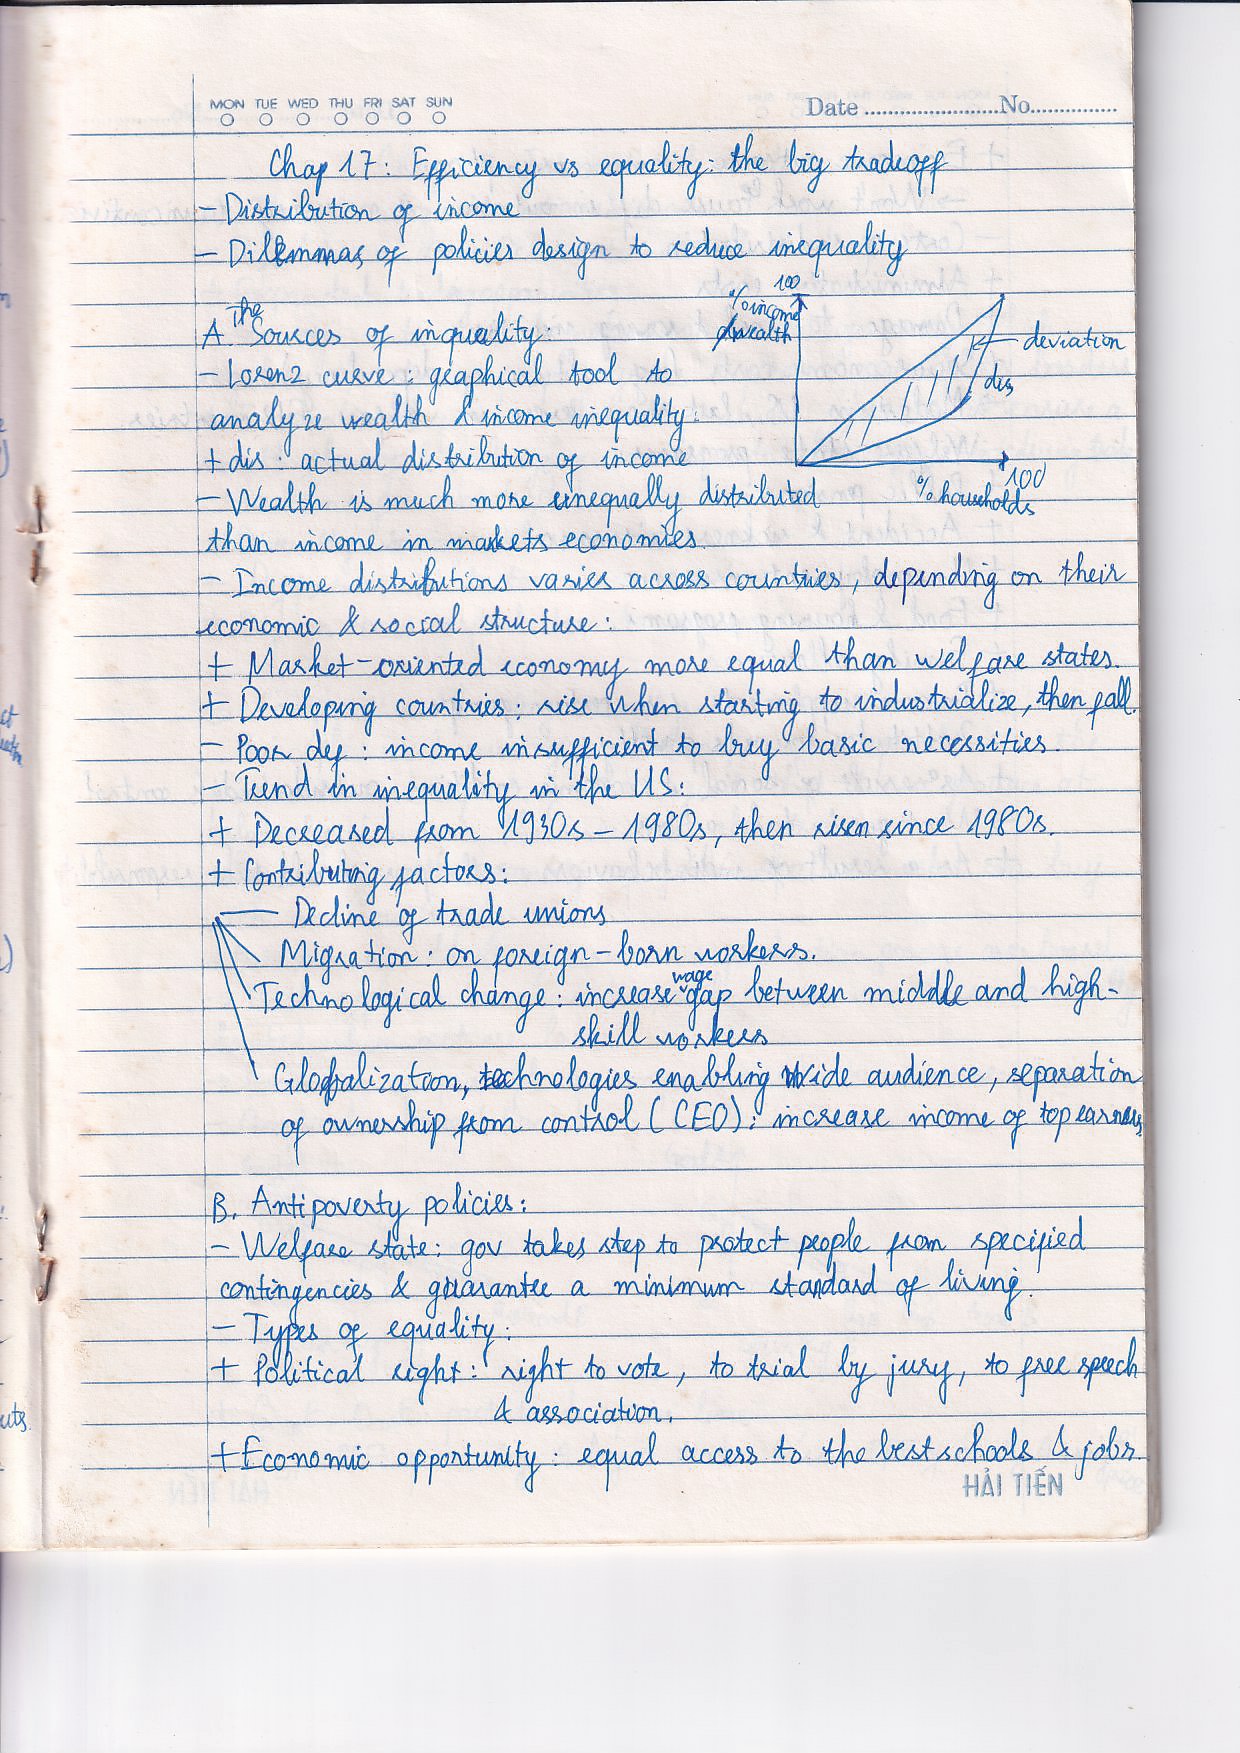 MON TUE WED THU FRI SAT SUN
Date ........................No...............
Chap 17: Efficiency vs equality: the big tradeoff
- Distribution of income
- Dilemmas of policies design to reduce inequality
A. The Sources of inequality:
- Lorenz curve: graphical tool to
analyze wealth & income inequality:
+ dis: actual distribution of income
100
% income
wealth
deviation
dis
100
% households
- Wealth is much more unequally distributed
than income in markets economies.
- Income distributions varies across countries, depending on their
economic & social structure:
+ Market-oriented economy more equal than welfare states.
+ Developing countries: rise when starting to industrialize, then fall.
- Poor def: income insufficient to buy basic necessities.
- Trend in inequality in the US:
+ Decreased from 1930s - 1980s, then risen since 1980s.
+ Contributing factors:
Decline of trade unions
Migration: on foreign-born workers.
Technological change: increase wage gap between middle and high-
skill workers
Globalization, technologies enabling wide audience, separation
of ownership from control (CEO): increase income of top earners
B. Antipoverty policies:
- Welfare state: gov takes step to protect people from specified
contingencies & guarantee a minimum standard of living.
- Types of equality:
+ Political right: right to vote, to trial by jury, to free speech
& association.
+ Economic opportunity: equal access to the best schools & jobs.
HẢI TIẾN